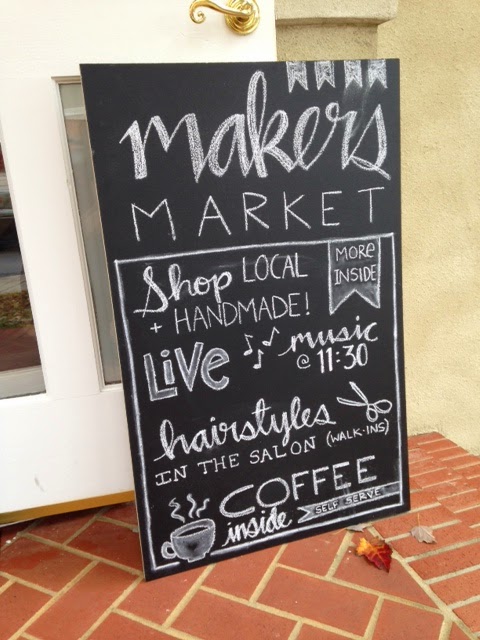 makers
MARKET
MORE
INSIDE
Shop LOCAL
+ HANDMADE!
LiVe music
@ 11:30
hairstyles
IN THE SALON (WALK-INS)
COFFEE
inside SELF SERVE